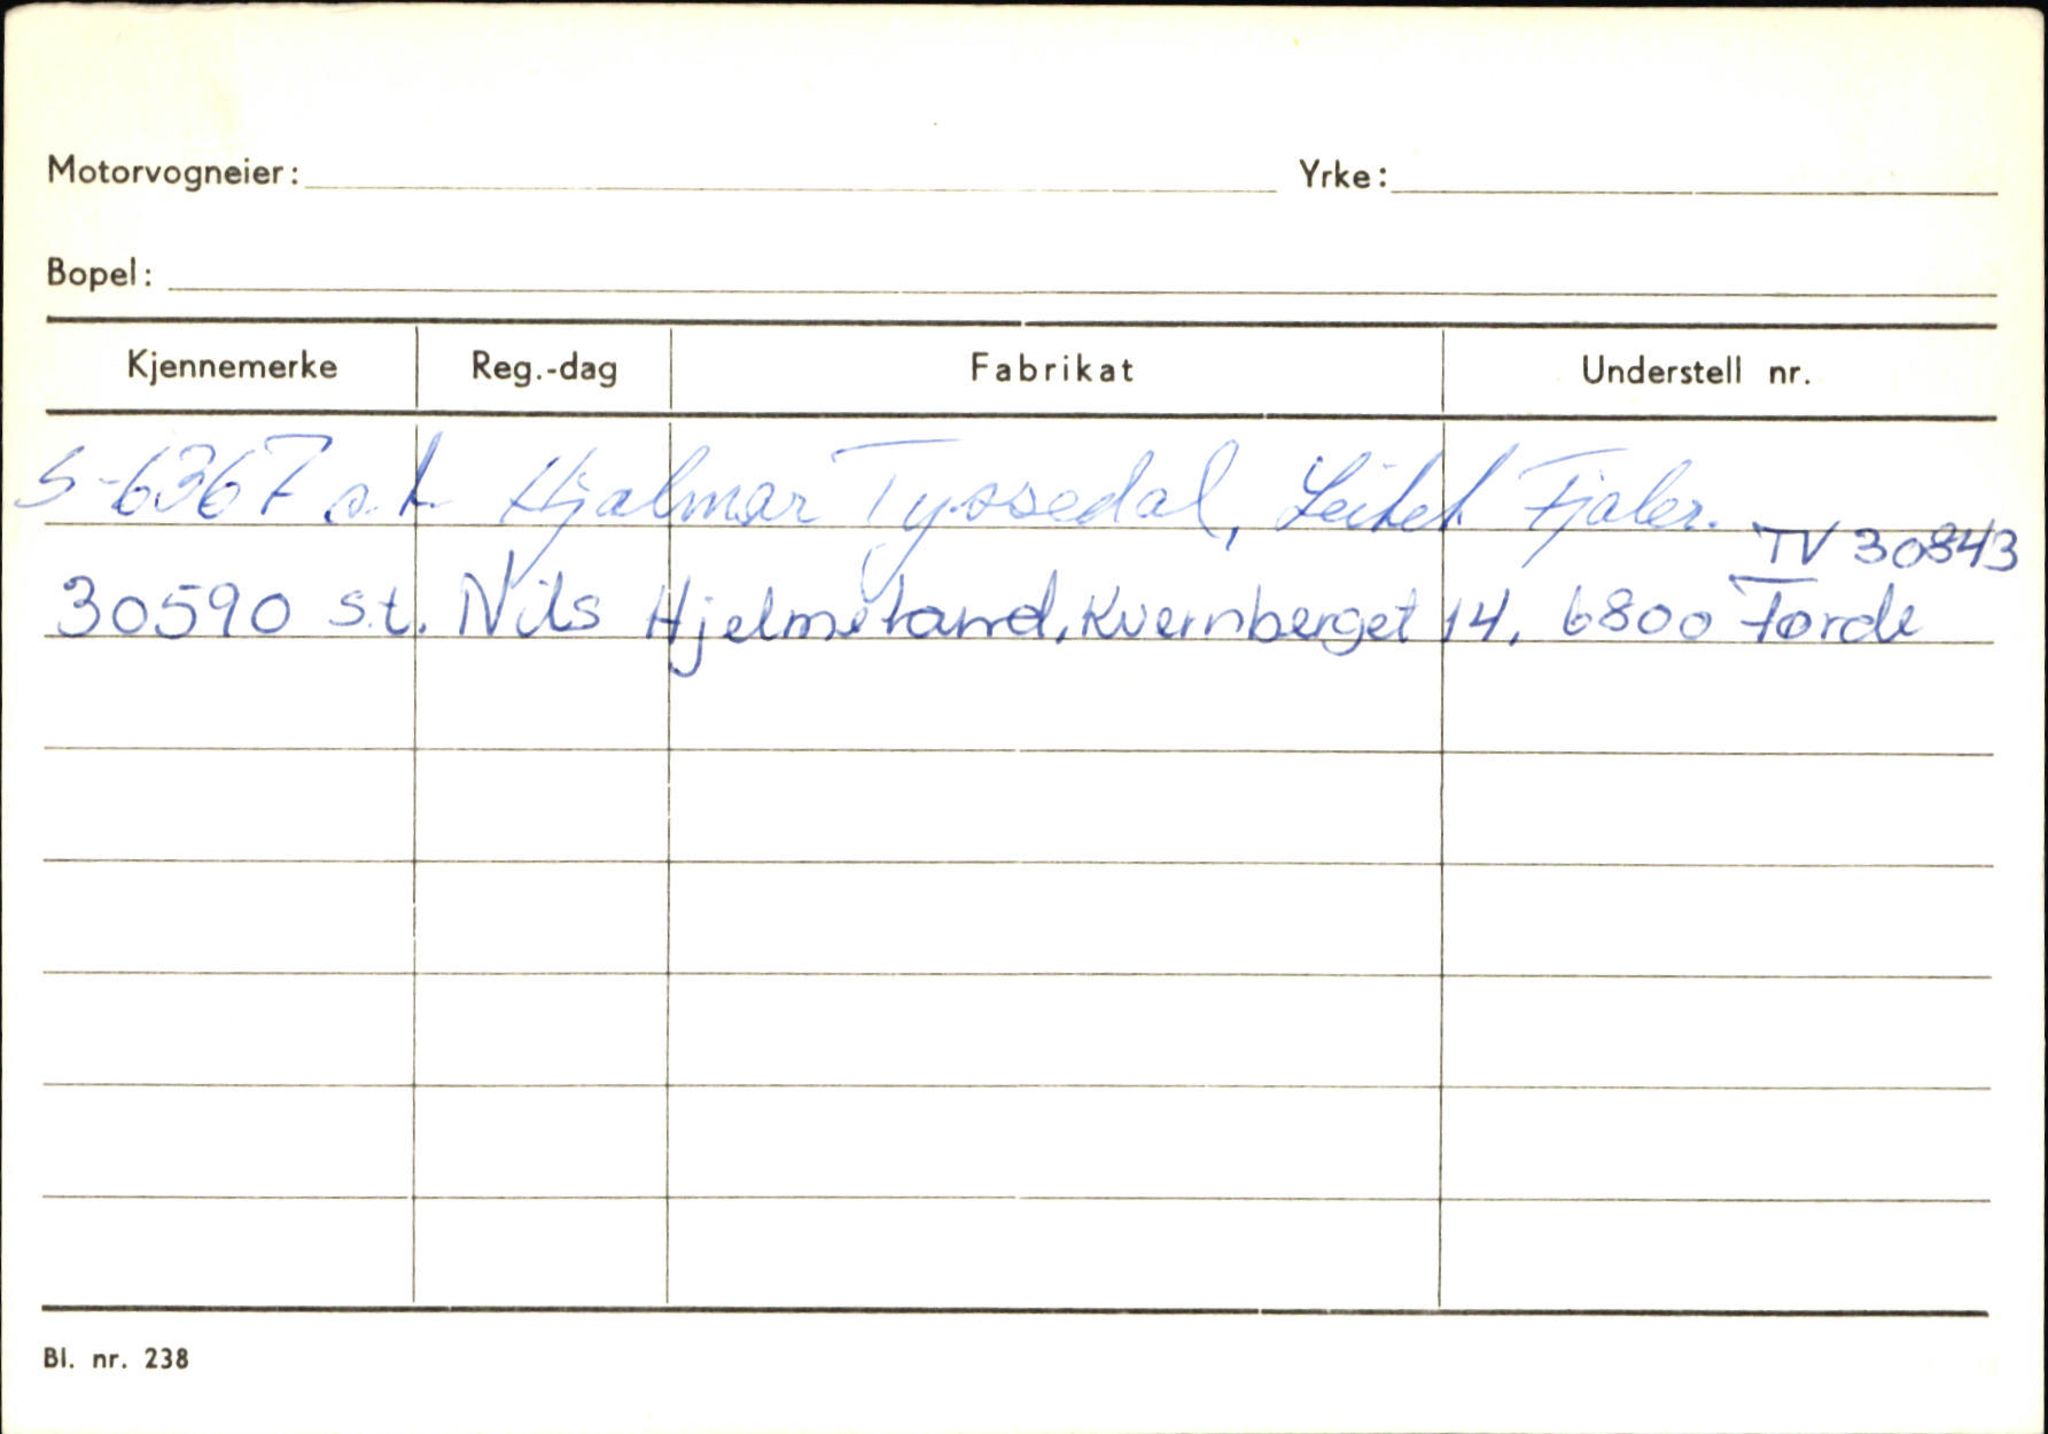 Motorvogneier: Yrke:
Bopel:
Kjennemerke Reg.-dag Fabrikat Understell nr.
S-6367 s.t. Hjalmar Tyssedal, Fjaler.
TV 30843
30590 s.t. Nils Hjelmeland, Kvernberget 14, 6800 Førde
Bl. nr. 238